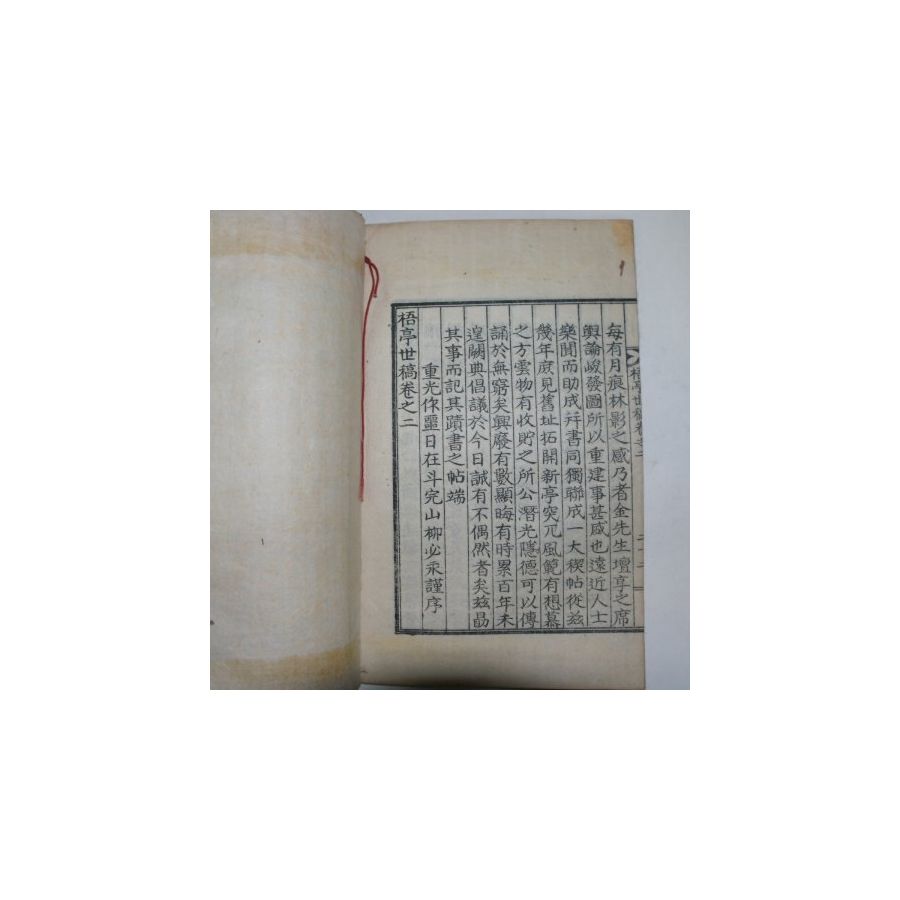 每有月痕林影之感乃者金先生壇享之席
輿論峻發圖所以重建事甚盛也遠近人士
樂聞而助成幷書同獨聯成一大稧帖從玆
幾年庶見舊址拓開新亭突兀風範有想慕
之方雲物有收貯之所公潛光隱德可以傳
誦於無窮矣興廢有數顯晦有時累百年未
遑闕典倡議於今日誠有不偶然者矣玆勗
其事而記其蹟書之帖端
重光作噩日在斗完山柳必永謹序
梧亭世稿卷之二
梧亭世稿卷之二
二十二